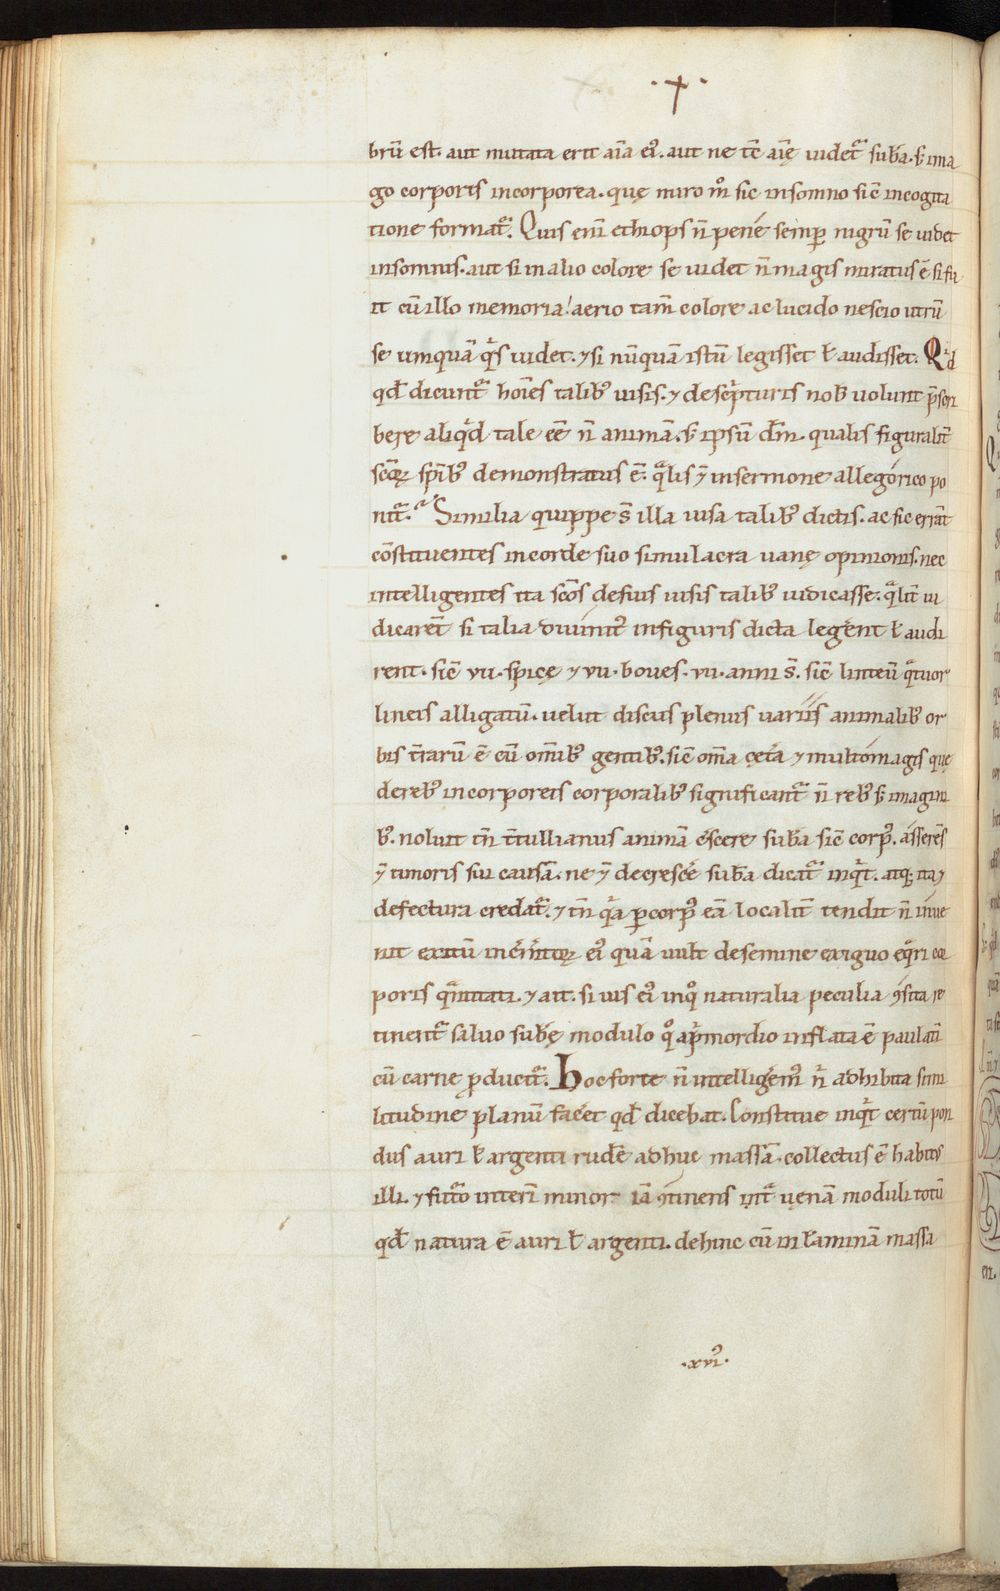 brū est. aut mutata erit aīa eꝰ. aut ne tē aīę uidet᷑ suba. s; ima
go corporis incorporea. quę miro mͦ sic insomno sic̄ incogita
tione format᷑. Quis eni ethiops n̄ pene semp nigrū se uidet
insomnis. aut si inalio colore se uidet n̄ magis miratus ē si fu
it cū illo memoria! aerio tam̄ colore ac lucido nescio utrū
se umquā qͥs uidet. ⁊ si nūquā istū legisset ł audisset. Qͥd
qd̄ ducunt᷑ hoīes talibꝰ uisis. ⁊ descͥpturis nob̄ uolunt p̄scri
bere aliqͥd tale eē n̄ animā. s; ipsū dm̄. qualis figuralit̄
scōꝝ spibꝰ demonstratus ē. qͣlis ⁊̄ insermone allegorico po
nit᷑. Similia quippe s̄ illa uisa talibꝰ dictis. ac sic errāt
cōstituentes incorde suo simulacra uanę opinionis. nec
intelligentes ita scōs desuis uisis talibꝰ iudicasse. qͣlit̄ iu
dicarēt si talia diuinitꝰ infiguris dicta legent ł audi
rent. sic̄ vii. spicę ⁊ vii. boues. vii. anni s̄. sic̄ linteū qͣtuor
lineis alligatū. uelut discus plenus uariis animalibꝰ or
bis t̄rarū ē cū om̄ibꝰ gentibꝰ. sic̄ om̄a cęt̄a ⁊ multomagis quę
derebꝰ incorporeis corporalibꝰ significant᷑ n̄ rebꝰ s; imagini
bꝰ. noluit tn̄ t̄tullianus animā cˀscere suba sic̄ corpꝰ. asserēs
⁊̄ timoris sui causā. ne ⁊̄ decrescˀe suba dicat᷑ inqͥt. atq; ita ⁊
defectura credat᷑. ⁊ tn̄ qͥa p corpꝰ eā localit̄ tendit n̄ inue
nit exitū incˀm̄toꝝ eꝰ quā uult desemine exiguo eqͣri cor
poris qͣntitati. ⁊ ait. si uis eꝰ inqͦ naturalia peculia ꝯsita re
tinent᷑ saluo subę modulo qͦ apͥmordio inflata ē paulatī
cū carne ꝓducit᷑. Hoc forte n̄ intelligemꝰ nͥ adhibita simi
litudine planū facˀet qd̄ dicebat. Constitue inqͥt certū pon
dus auri ł argenti rudē adhuc massā. collectus ē habitꝰ
illi. ⁊ futͦo interī minor iā ꝯtinens int᷑ uenā moduli totū
qd̄ natura ē auri ł argenti. dehinc cū in laminā massa
.xviꝰ.